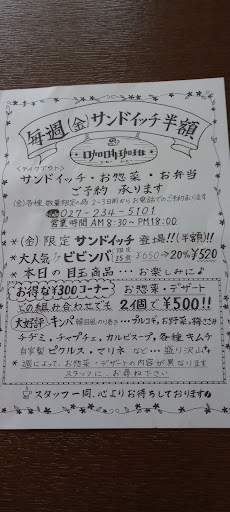 毎週㊎サンドイッチ半額
珈琲
<テイクアウト>
サンドイッチ・お惣菜・お弁当
ご予約 承ります
(金)各種、数量限定の為 2~3日前からお電話でのご予約承ります
027-234-5101
営業時間 AM8:30~PM18:00
(金)限定 サンドイッチ 登場!!(半額!!)
大人気♪ビビンバ 限定 35食 ¥650→20% ¥520
★本日の目玉商品…お楽しみに♪
お得な¥300コーナー お惣菜・デザート
どの組み合わせでも 2個で¥500!!
大好評 キンパ 韓国風のり巻き…プルコギ、お野菜、特さささみ
チヂミ、チャプチェ、カルビスープ、各種キムチ
自家製ピクルス・マリネ など…盛り沢山
週によって、お惣菜・デザートの内容が異なります
スタッフに、お尋ね下さい
スタッフ一同、心よりお待ちしております